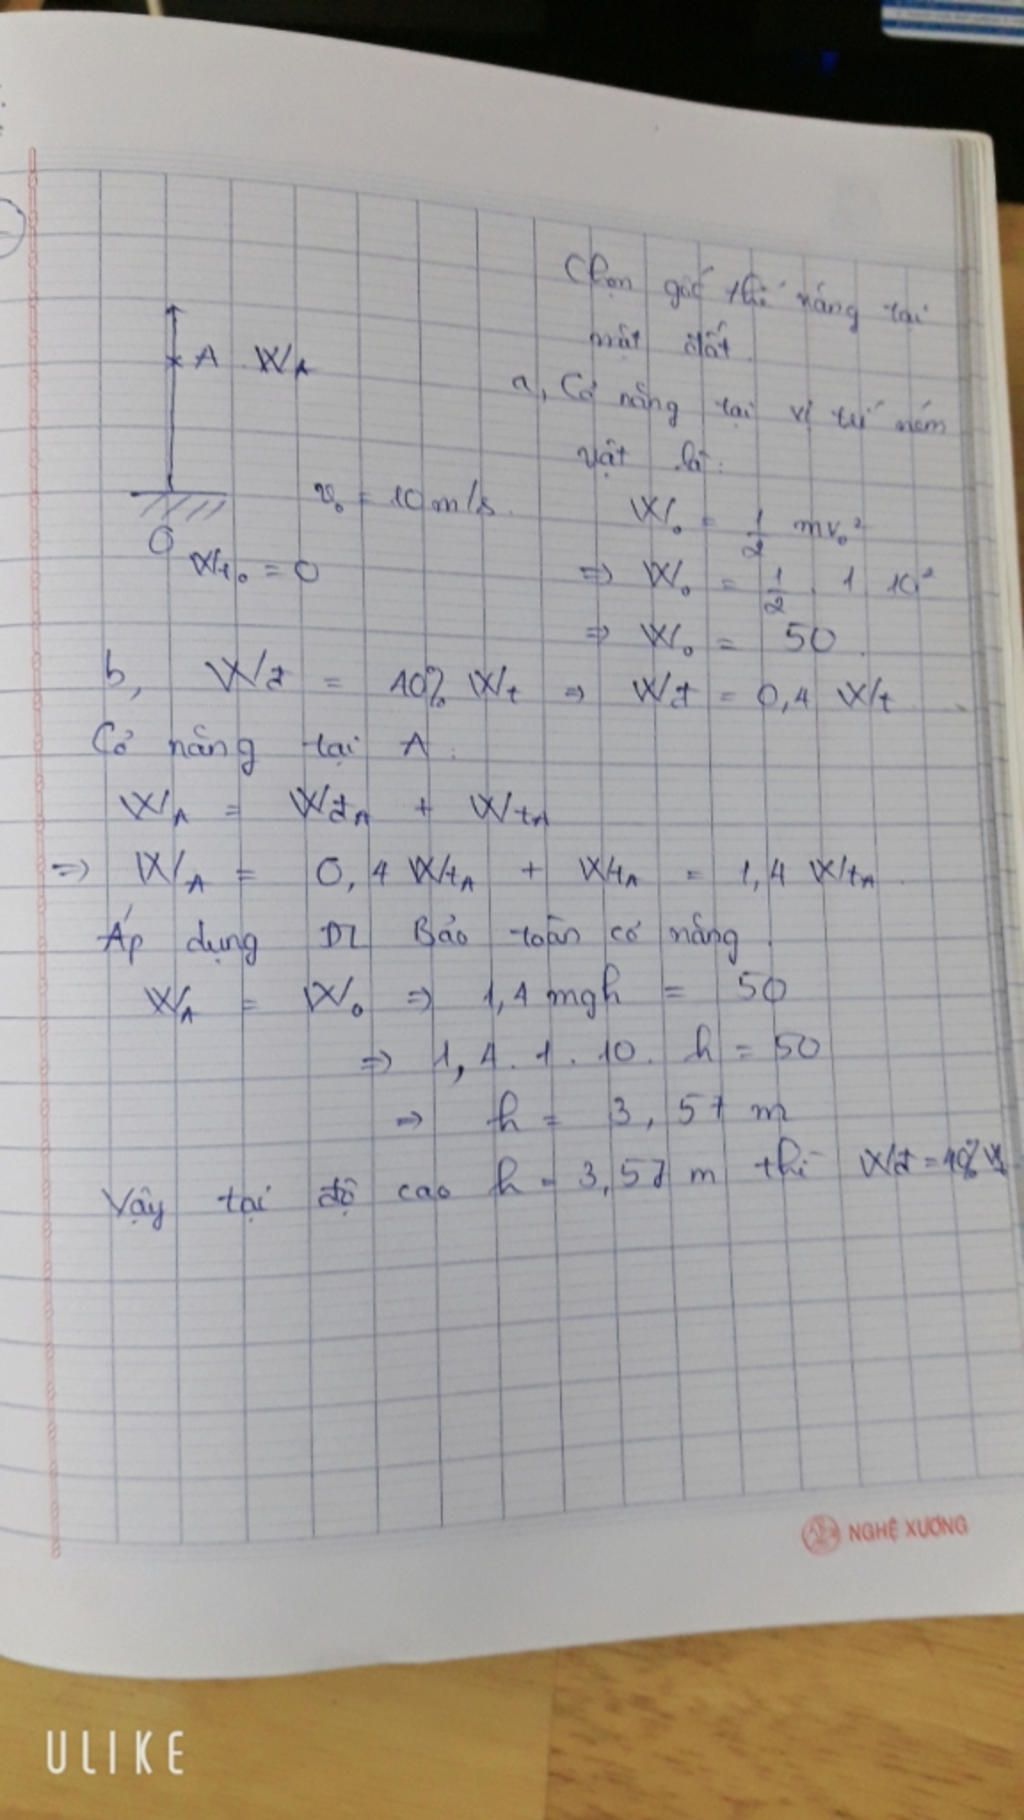 Chọn gốc thế năng tại
mặt đất.
A WA
a, Cơ năng tại vị trí ném
vật là:
v₀ = 10 m/s.
W₀ = 1/2 mv₀²
O
Wt₀ = 0
=> W₀ = 1/2 . 1 10²
=> W₀ = 50.
b, Wđ = 40% Wt => Wđ = 0,4 Wt
Cơ năng tại A.
WA = WđA + WtA
=> WA = 0,4 WtA + WtA = 1,4 WtA.
Áp dụng ĐL Bảo toàn cơ năng.
WA = W₀ => 1,4 mgh = 50
=> 1,4.1.10. h = 50
=> h = 3,57 m
Vậy tại độ cao h = 3,57 m thì Wđ = 40% Wt
NGHỆ XƯƠNG
ULIKE